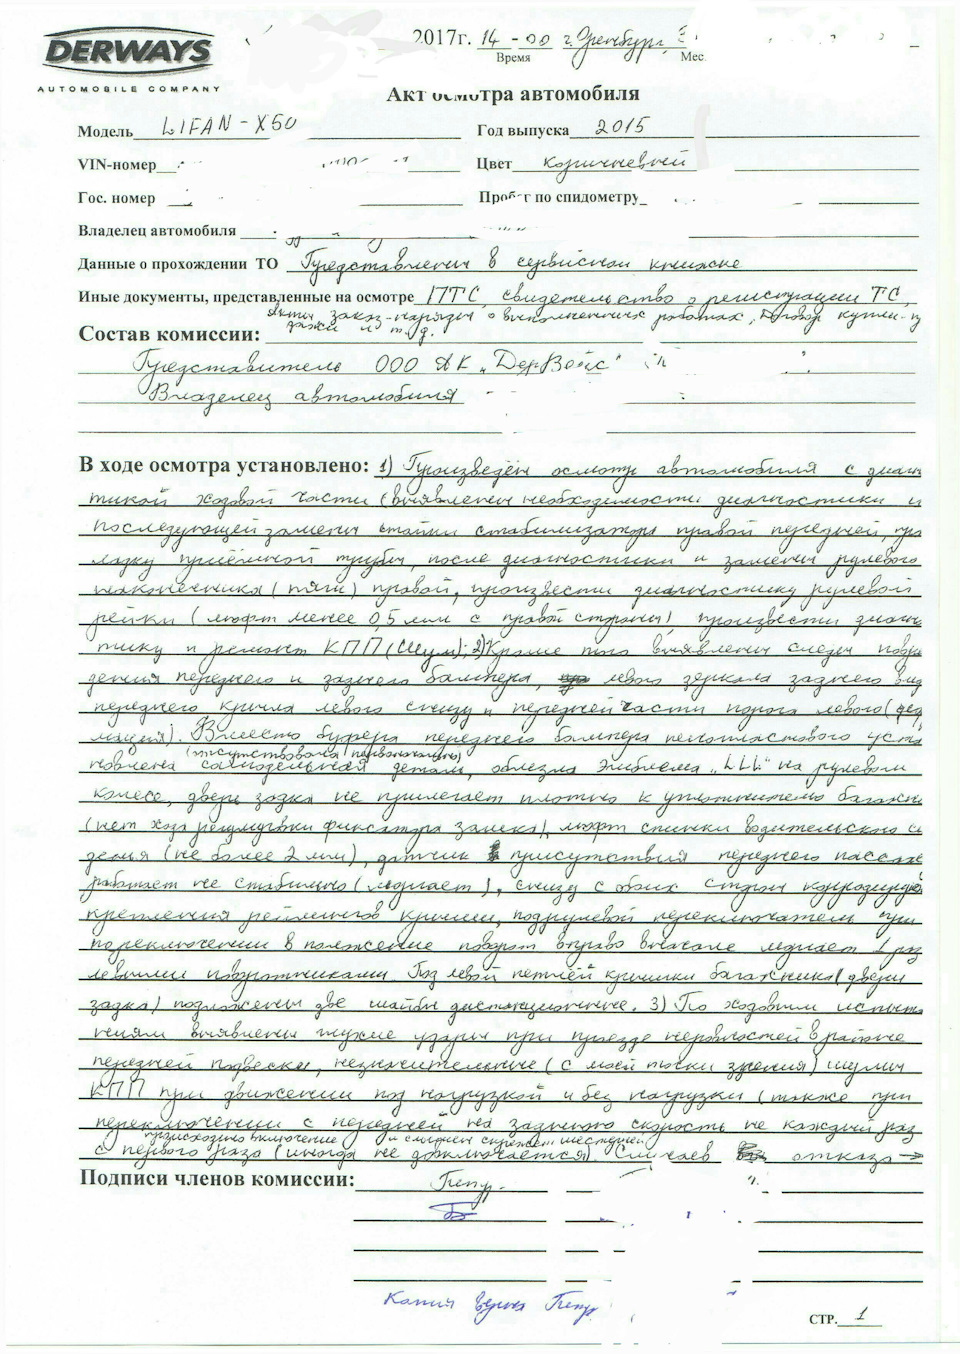 DERWAYS
AUTOMOBILE COMPANY
2017г. 14-00 г. Оренбург,
Время Мес
Акт осмотра автомобиля
Модель LIFAN-X50 Год выпуска 2015
VIN-номер Цвет коричневый
Гос. номер Пробег по спидометру
Владелец автомобиля
Данные о прохождении ТО Представлены в сервисной книжке
Иные документы, представленные на осмотре ПТС, свидетельство о регистрации ТС,
Акты заказ-наряды о выполненных работах, Договор купли-п
дажи и т.д.
Состав комиссии:
Представитель ООО АК „ДерВейс"
Владелец автомобиля
В ходе осмотра установлено: 1) Произведён осмотр автомобиля с диагн
тикой ходовой части (выявлены необходимости диагностики и
последующей замены стойки стабилизатора правой передней, про
ладку приёмной трубы, после диагностики и замены рулевого
наконечника (тяги) правой, произвести диагностику рулевой
рейки (люфт менее 0,5 мм с правой стороны), произвести диагн
тику и ремонт КПП (Шум); 2) Кроме того выявлены следы повре
дения переднего и заднего бампера, левого зеркала заднего вид
переднего крыла левого снизу и передней части порога левого (деф
мация). Вместо буфера переднего бампера пенопластового уста
(отсутствовала первоначально)
новлена самодельная деталь, облезла эмблема „LLL" на рулевом
колесе, дверь задка не прилегает плотно к уплотнителю багажн
(нет хода регулировки фиксатора замка), люфт спинки водительского си
денья (не более 2 мм), датчик присутствия переднего пассаж
работает не стабильно (моргает), снизу с обоих сторон корродируют
крепления рейлингов крыши, подрулевой переключатель при
переключении в положение поворот вправо вначале моргает 1 раз
левыми поворотниками. Под левой петлёй крышки багажника (двери
задка) подложены две шайбы дистанционные. 3) По ходовым испыта
ниям выявлены глухие удары при проезде неровностей в районе
передней подвески, незначительные (с моей точки зрения) шумы
КПП при движении под нагрузкой и без нагрузки (также при
переключении с передней на заднюю скорость не каждый раз
происходило включение и слышен скрежет шестерней
с первого раза (иногда не доключается). Случаев отказа →
Подписи членов комиссии:
Копия верна
СТР. 1